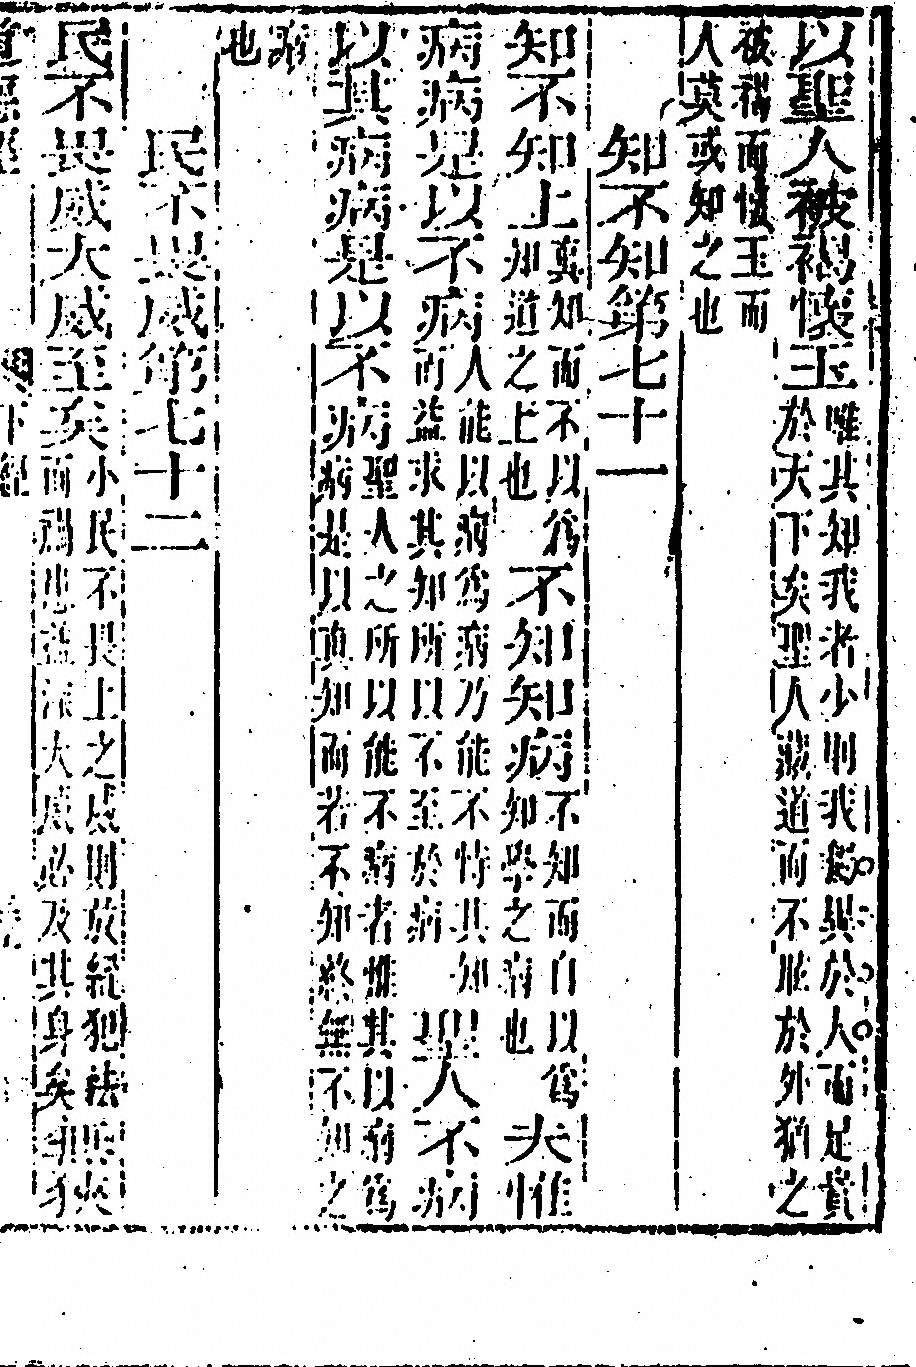 以聖人被褐懷玉唯其知我者少則我爲異於人而足貴於天下矣聖人蘊道而不眩於外猶之
被褐而懷玉而人莫或知之也
知不知第七十一
知不知上真知而不以爲知道之上也不知知病不知而自以爲知學之病也夫惟
病病是以不病人能以病爲病乃能不恃其知而益求其知所以不至於病聖人不病
以其病病是以不病聖人之所以能不病者惟其以病爲病是以真知而若不知終無不知之
病也
民不畏威第七十二
民不畏威大威至矣小民不畏上之威則放縱犯法無而爲忠益深大威必及其身矣